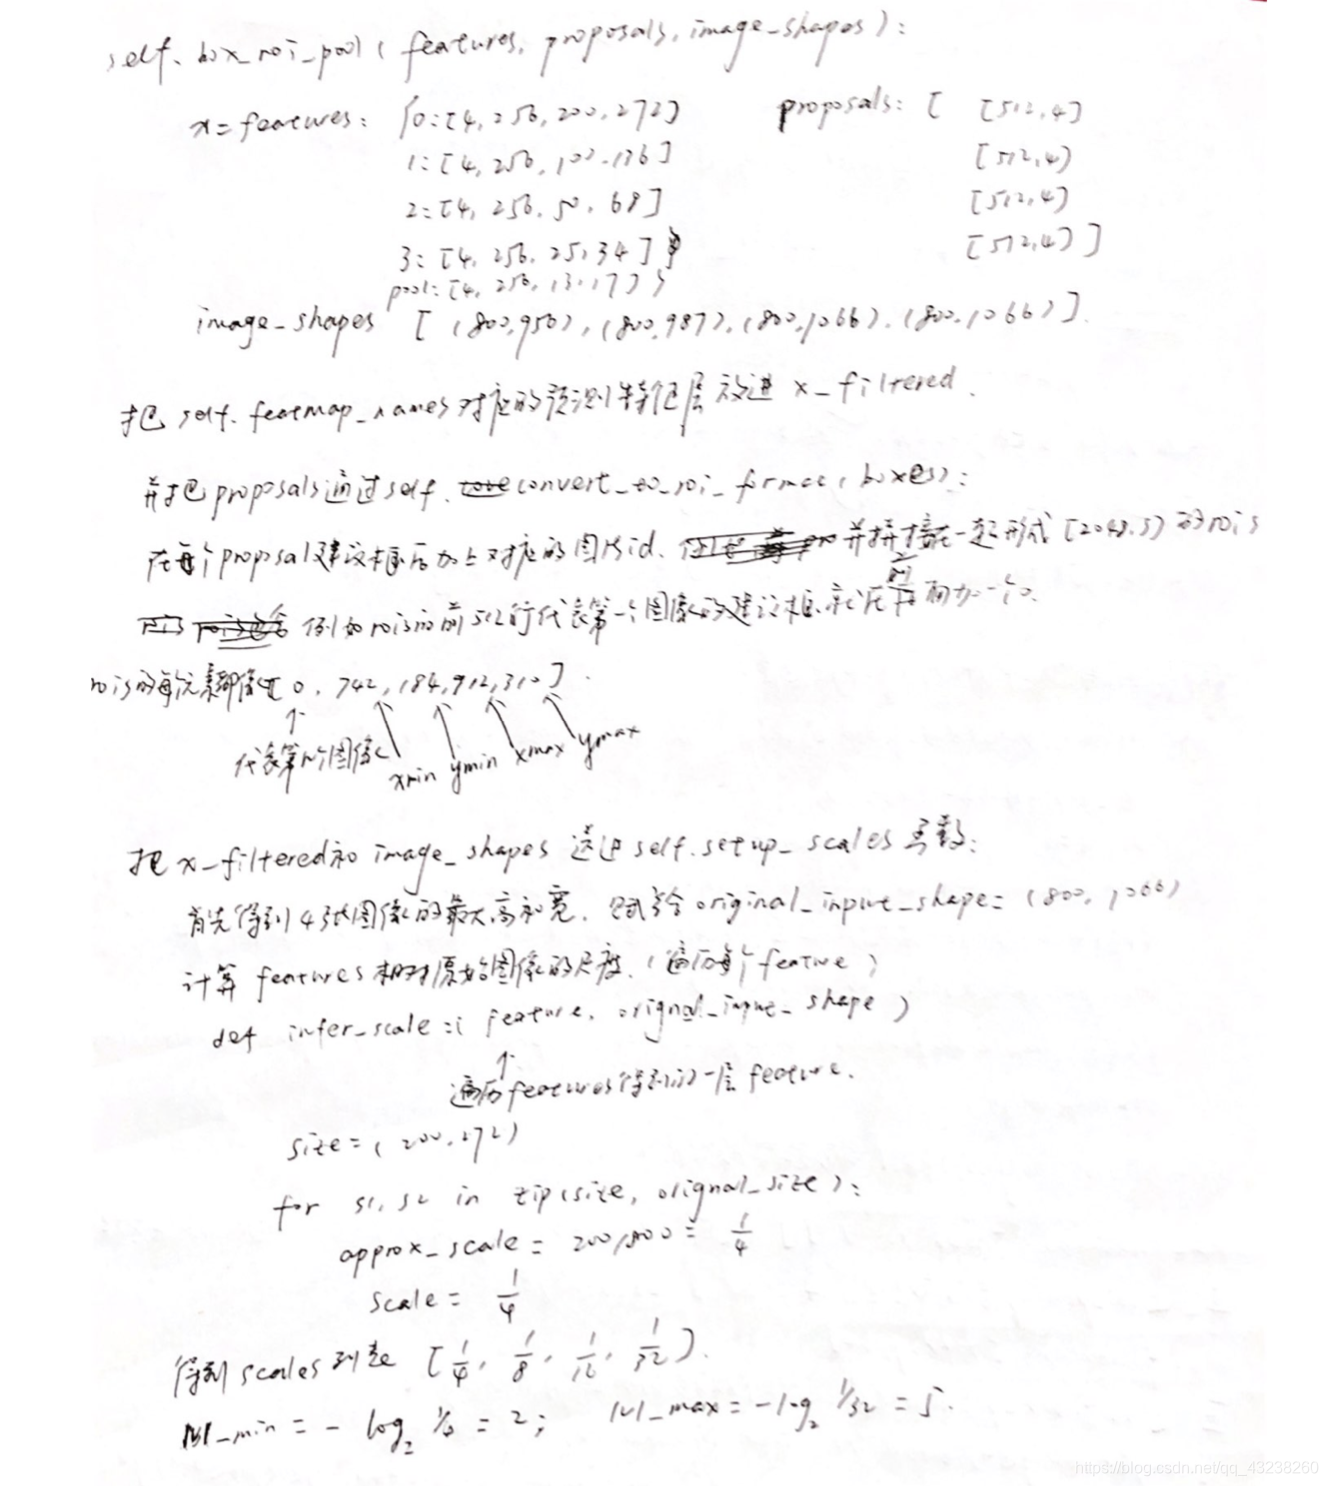 self.box_roi_pool(features, proposals, image_shapes):
x=features: {0:[4,256,200,272] proposals: [ [512,4]
1:[4,256,100,136] [512,4]
2:[4,256,50,68] [512,4]
3:[4,256,25,34] [512,4] ]
pool:[4,256,13,17] }
image_shapes [(800,950),(800,987),(800,1066),(800,1066)].
把self.featmap_names对应的预测特征层放进x_filtered.
并把proposals通过self.convert_to_roi_format(boxes):
在每个proposal建议框后加上对应的图片id, 并拼接在一起形成[2048,5]的rois
例如rois的前512行代表第一个图像的建议框,就在前面加一个0.
rois的每个元素都像[0,742,184,912,310].
代表第几个图像 xmin ymin xmax ymax
把x_filtered和image_shapes送进self.setup_scales函数:
首先得到4张图像的最大高和宽,赋给original_input_shape=(800,1066)
计算features相对原始图像的尺度.(遍历每个feature)
def infer_scale:(feature, orignal_input_shape)
遍历features得到的一层feature.
size=(200,272)
for s1,s2 in zip(size, orignal_size):
approx_scale = 200/800 = 1/4
scale = 1/4
得到scales列表 [1/4, 1/8, 1/16, 1/32].
lvl_min = -log₂ 1/4 = 2; lvl_max = -log₂ 1/32 = 5.
https://blog.csdn.net/qq_43238260